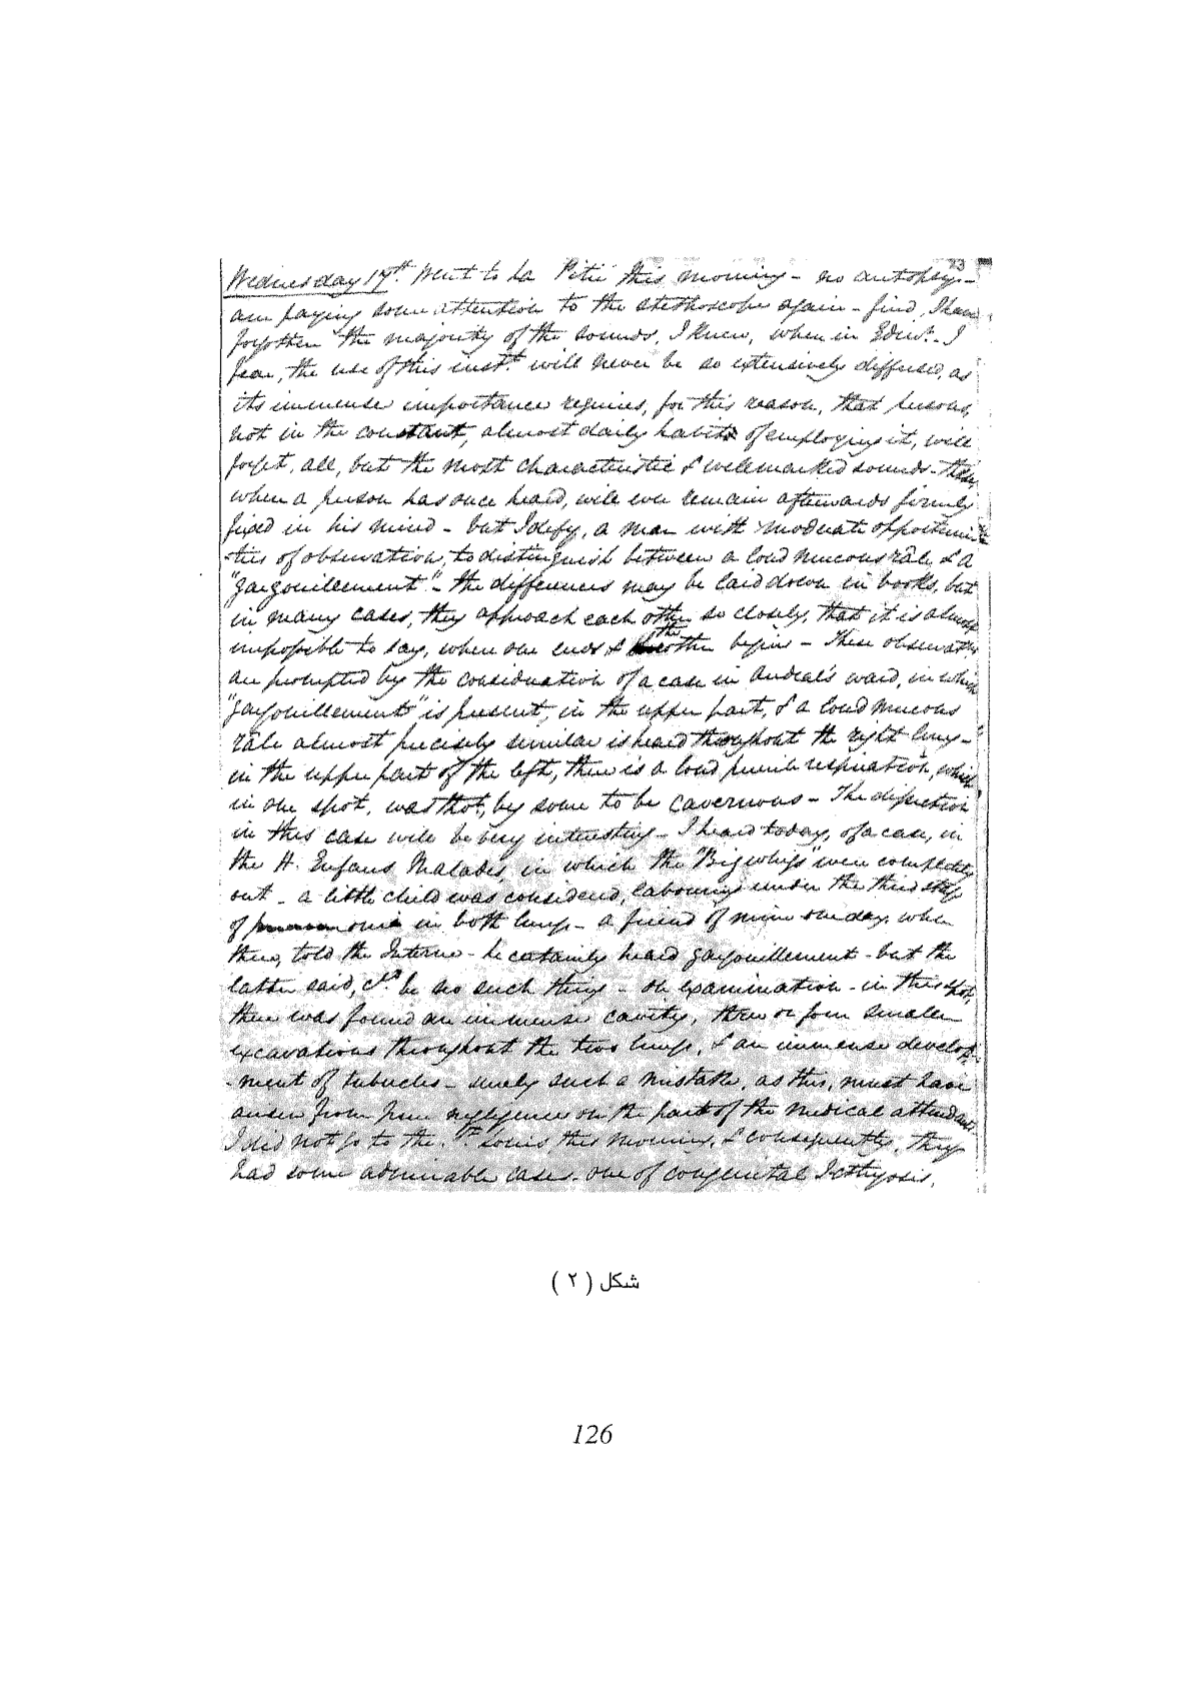 23
Wednesday 17th. Went to La Pitié this morning – no autopsy –
am paying some attention to the stethoscope again – find, I have
forgotten the majority of the sounds, I knew, when in Edinr. – I
fear, the use of this instt. will never be so extensively diffused, as
its immense importance requires, for this reason, that persons,
not in the constant, almost daily habits of employing it, will
forget, all, but the most characteristic & wellmarked sounds – these,
when a person has once heard, will ever remain afterwards firmly
fixed in his mind – but I defy, a man with moderate opportuni
-ties of observation, to distinguish between a loud mucous râle & a
"gargouillement" – the differences may be laid down in books, but
in many cases, they approach each other so closely, that it is almost
impossible to say, where one ends & the other begins – These observations
are prompted by the consideration of a case in Andral's ward, in which
"gargouillement" is present, in the upper part, & a loud mucous
râle almost precisely similar is heard throughout the right lung –
in the upper part of the left, there is a loud puerile respiration, which
in one spot, was thot, by some to be cavernous – The dissection
in this case will be very interesting – I heard today, of a case, in
the H. Enfans Malades, in which the "Bigwhigs" were completely
out – a little child was considered, labouring under the third stage
of in both lungs – a friend of mine one day, when
there, told the Interne – he certainly heard gargouillement – but the
latter said, cld. be no such thing – on examination – in this spot,
there was found an immense cavity, three or four smaller
excavations throughout the two lungs, & an immense develop
-ment of tubercles – surely such a mistake, as this, must have
arisen from pure negligence on the part of the medical attendants.
I did not go to the St. Louis this morning, & consequently, they
had some admirable cases – one of congenital Icthyosis.
شكل ( ٢ )
126